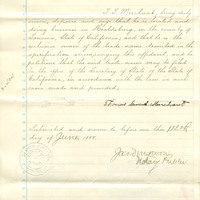 T. S. Merchant, being duly
sworn, deposes and says that he is located and
doing business in Healdsburg, in the county of
Sonoma, State of California, and that he is the
exclusive owner of the trade-mark described in the
specification accompanying this affidavit, and he
petitions that the said trade-mark may be filed
in the office of the Secretary of State of the State of
California, in accordance with the law in such
case made and provided.
Subscribed and sworn to before me this
day of June 188
Notary Public